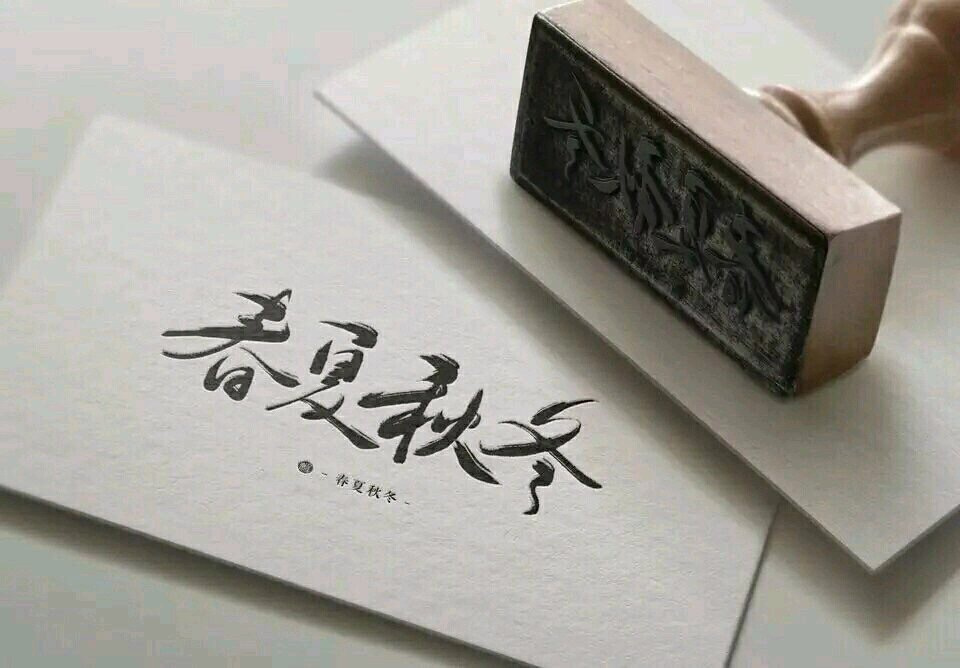 春夏秋冬
- 春夏秋冬 -